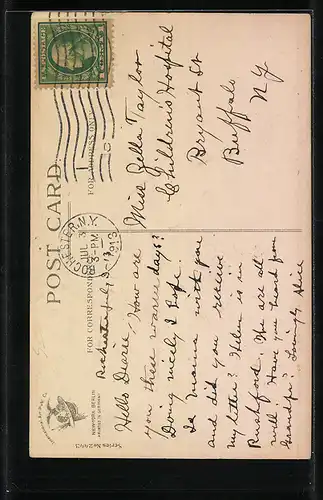 POST CARD.
FOR CORRESPONDENCE
FOR ADDRESS ONLY
U.S. POSTAGE
ROCHESTER, N.Y.
JUL 3
3-PM
1913
1
Miss Zella Taylor
Children's Hospital
Bryant St
Buffalo
NY
Rochester July 3-13
Hello Dearie, How are
you these warm days?
Doing nicely I hope
Is Mamie with you
and did you receive
my letter? Helen is in
Rushford. We are all
well. Have you heard from
Grandpa? Lovingly Alice
NEW YORK BERLIN
Series No 2443